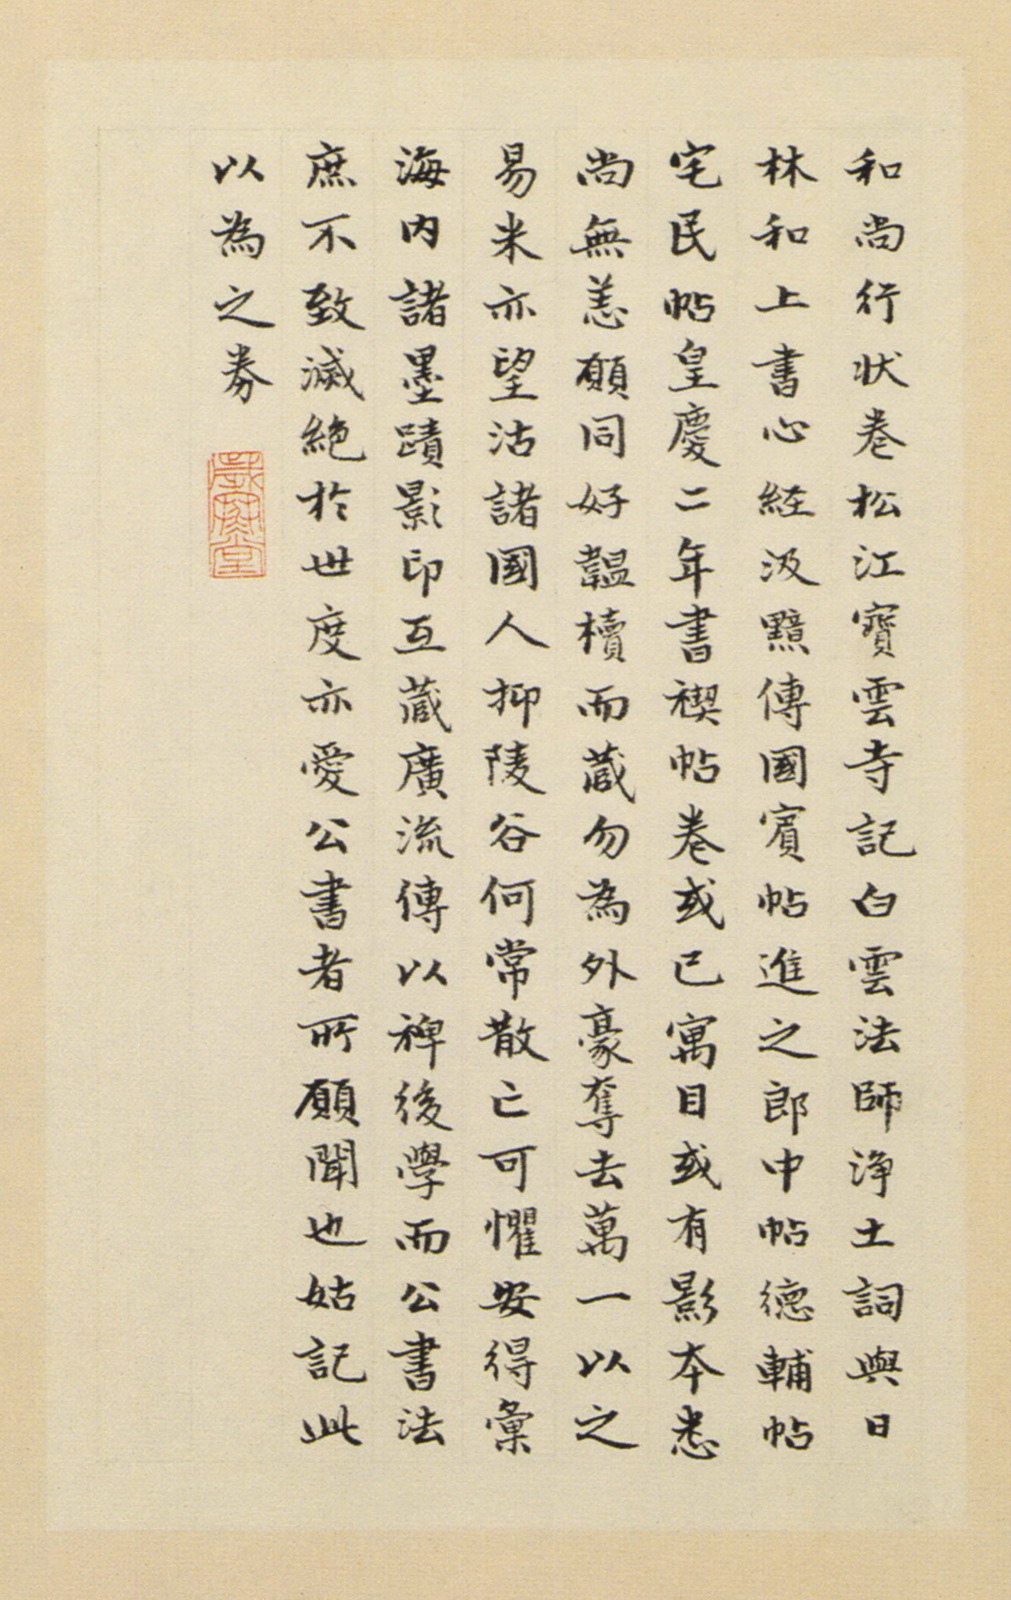 和尚行狀卷松江寶雲寺記白雲法師淨土詞與日
林和上書心經汲黯傳國賓帖進之郎中帖德輔帖
宅民帖皇慶二年書禊帖卷或已寓目或有影本悉
尚無恙願同好韞櫝而藏勿為外豪奪去萬一以之
易米亦望沽諸國人抑陵谷何常散亡可懼安得彙
海內諸墨蹟影印互藏廣流傳以裨後學而公書法
庶不致滅絕於世度亦愛公書者所願聞也姑記此
以為之券